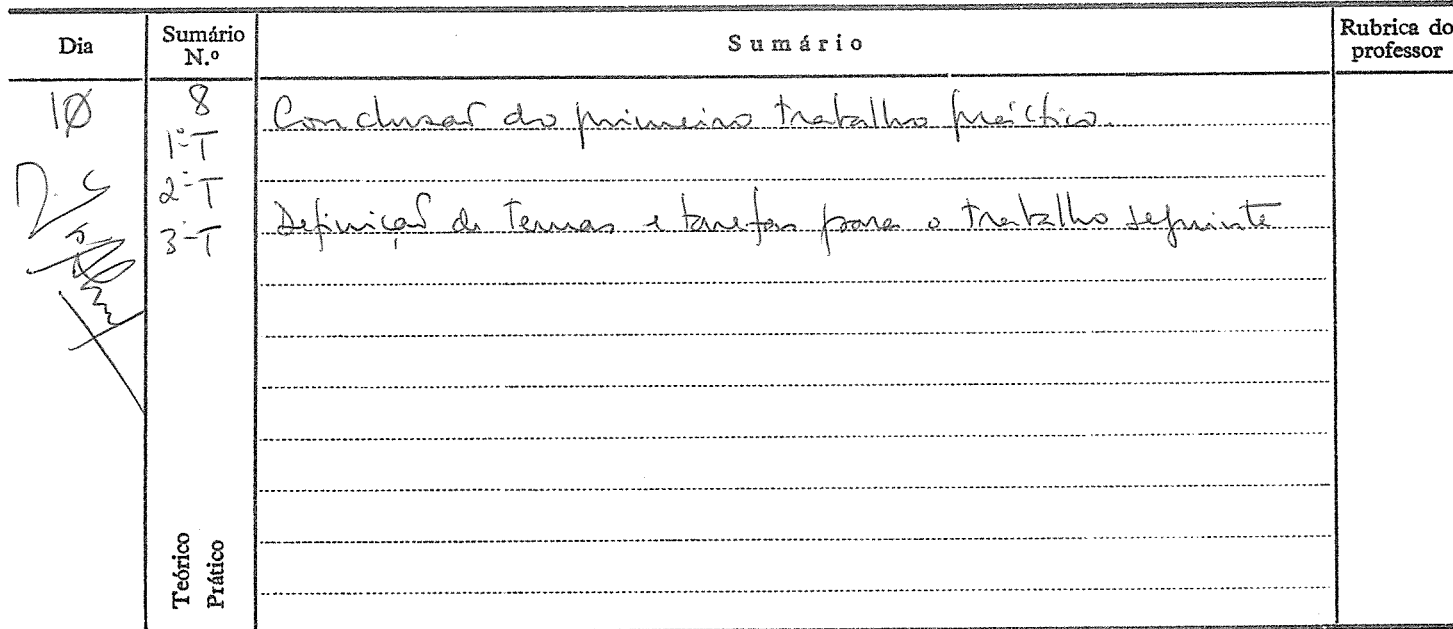 Dia
Sumário N.º
Sumário
Rubrica do professor
10
8
1ª T
2ª T
3ª T
Conclusão do primeiro trabalho práctico.
Definição de Temas e tarefas para o trabalho seguinte
Teórico
Prático